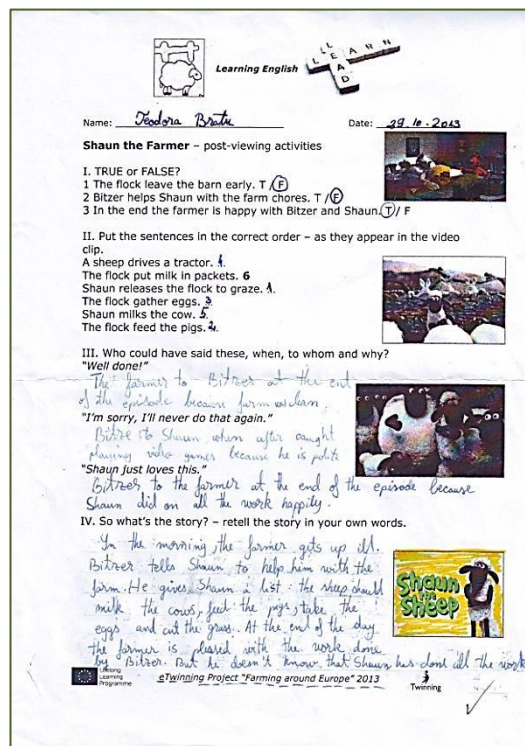 LEAD
LEARN
Learning English
Name: Teodora Bratu Date: 29.10.2013
Shaun the Farmer – post-viewing activities
I. TRUE or FALSE?
1 The flock leave the barn early. T / F
2 Bitzer helps Shaun with the farm chores. T / F
3 In the end the farmer is happy with Bitzer and Shaun. T / F
II. Put the sentences in the correct order – as they appear in the video
clip.
A sheep drives a tractor. 4.
The flock put milk in packets. 6
Shaun releases the flock to graze. 1.
The flock gather eggs. 3.
Shaun milks the cow. 5.
The flock feed the pigs. 2.
III. Who could have said these, when, to whom and why?
"Well done!"
The farmer to Bitzer at the end
of the episode because farm was clean.
"I'm sorry, I'll never do that again."
Bitzer to Shaun when after caught
playing video games because he is polite
"Shaun just loves this."
Bitzer to the farmer at the end of the episode because
Shaun did on all the work happily.
IV. So what's the story? – retell the story in your own words.
In the morning, the farmer gets up ill.
Bitzer tells Shaun to help him with the
farm. He gives Shaun a list: the sheep should
milk the cows, feed the pigs, take the
eggs and cut the grass. At the end of the day
the farmer is pleased with the work done
by Bitzer. But he doesn't know that Shaun has done all the work
Shaun
the
Sheep
Lifelong
Learning
Programme
eTwinning Project "Farming around Europe" 2013
Twinning